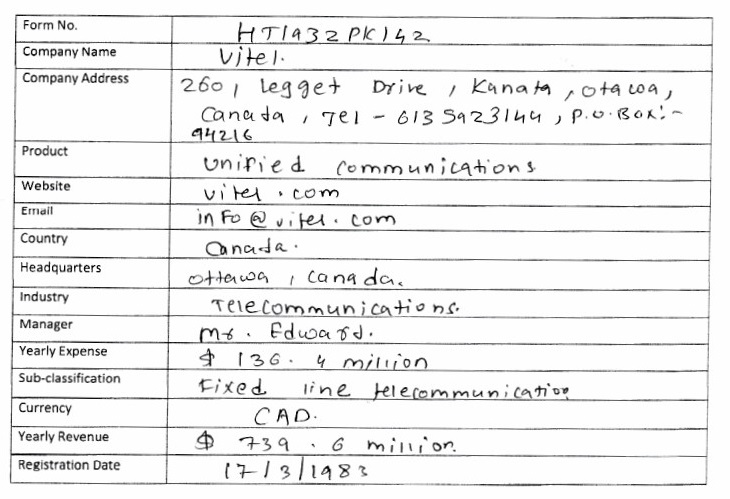 Form No. HT1932PK142
Company Name Vitel.
Company Address 260, Legget Drive, Kanata, Otawa,
Canada, Tel - 6135923144, P.O.Box:-
94216
Product Unified Communications
Website vitel.com
Email info@vitel.com
Country Canada.
Headquarters Ottawa, Canada.
Industry Telecommunications.
Manager Mr. Edward.
Yearly Expense $ 136.4 million
Sub-classification Fixed line telecommunication
Currency CAD.
Yearly Revenue $ 739.6 million.
Registration Date 17/3/1983